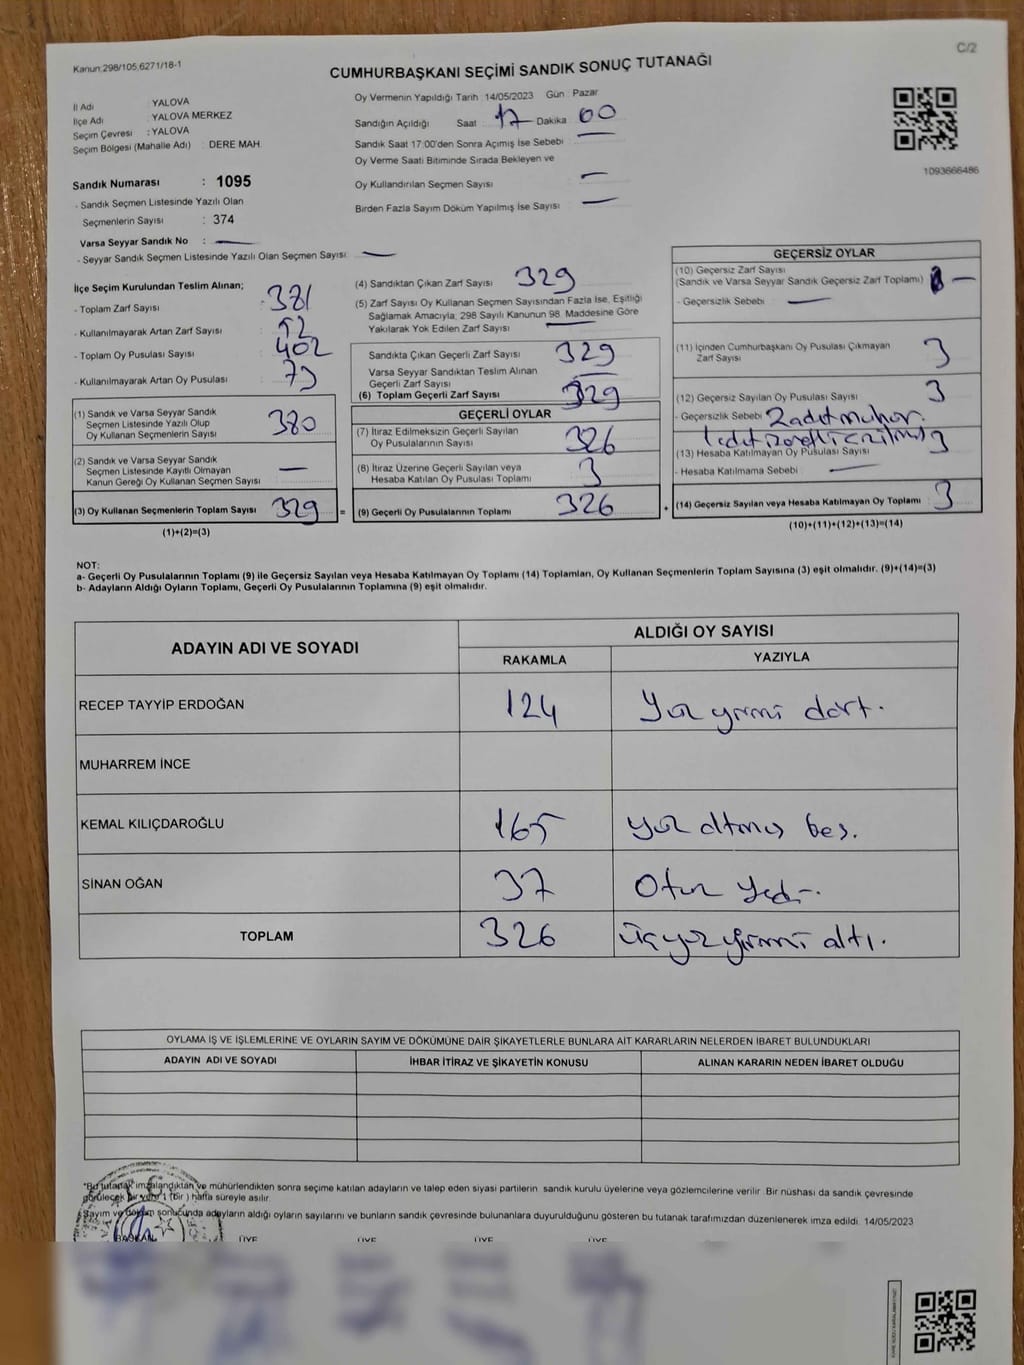 Kanun:298/105;6271/18-1
C/2
CUMHURBAŞKANI SEÇİMİ SANDIK SONUÇ TUTANAĞI
İl Adı YALOVA
İlçe Adı : YALOVA MERKEZ
Seçim Çevresi : YALOVA
Seçim Bölgesi (Mahalle Adı) : DERE MAH.
Oy Vermenin Yapıldığı Tarih : 14/05/2023 Gün : Pazar
Sandığın Açıldığı Saat 17 Dakika 00
Sandık Saat 17:00'den Sonra Açımış İse Sebebi —
Oy Verme Saati Bitiminde Sırada Bekleyen ve
Oy Kullandırılan Seçmen Sayısı —
Birden Fazla Sayım Döküm Yapılmış İse Sayısı —
1093666486
Sandık Numarası : 1095
- Sandık Seçmen Listesinde Yazılı Olan
Seçmenlerin Sayısı : 374
Varsa Seyyar Sandık No : —
- Seyyar Sandık Seçmen Listesinde Yazılı Olan Seçmen Sayısı : —
İlçe Seçim Kurulundan Teslim Alınan;
- Toplam Zarf Sayısı : 381
- Kullanılmayarak Artan Zarf Sayısı : 52
- Toplam Oy Pusulası Sayısı : 402
- Kullanılmayarak Artan Oy Pusulası : 73
(1) Sandık ve Varsa Seyyar Sandık
Seçmen Listesinde Yazılı Olup
Oy Kullanan Seçmenlerin Sayısı 380
(2) Sandık ve Varsa Seyyar Sandık
Seçmen Listesinde Kayıtlı Olmayan
Kanun Gereği Oy Kullanan Seçmen Sayısı —
(3) Oy Kullanan Seçmenlerin Toplam Sayısı 329 =
(1)+(2)=(3)
(4) Sandıktan Çıkan Zarf Sayısı 329
(5) Zarf Sayısı Oy Kullanan Seçmen Sayısından Fazla İse, Eşitliği
Sağlamak Amacıyla; 298 Sayılı Kanunun 98. Maddesine Göre
Yakılarak Yok Edilen Zarf Sayısı —
Sandıkta Çıkan Geçerli Zarf Sayısı 329
Varsa Seyyar Sandıktan Teslim Alınan
Geçerli Zarf Sayısı —
(6) Toplam Geçerli Zarf Sayısı 329
GEÇERLİ OYLAR
(7) İtiraz Edilmeksizin Geçerli Sayılan
Oy Pusulalarının Sayısı 326
(8) İtiraz Üzerine Geçerli Sayılan veya
Hesaba Katılan Oy Pusulası Toplamı 3
(9) Geçerli Oy Pusulalarının Toplamı 326 +
GEÇERSİZ OYLAR
(10) Geçersiz Zarf Sayısı
(Sandık ve Varsa Seyyar Sandık Geçersiz Zarf Toplamı) —
- Geçersizlik Sebebi —
(11) İçinden Cumhurbaşkanı Oy Pusulası Çıkmayan
Zarf Sayısı 3
(12) Geçersiz Sayılan Oy Pusulası Sayısı 3
- Geçersizlik Sebebi 2 adet muhur.
1 adet
(13) Hesaba Katılmayan Oy Pusulası Sayısı 3
- Hesaba Katılmama Sebebi —
(14) Geçersiz Sayılan veya Hesaba Katılmayan Oy Toplamı 3
(10)+(11)+(12)+(13)=(14)
NOT:
a- Geçerli Oy Pusulalarının Toplamı (9) ile Geçersiz Sayılan veya Hesaba Katılmayan Oy Toplamı (14) Toplamları, Oy Kullanan Seçmenlerin Toplam Sayısına (3) eşit olmalıdır. (9)+(14)=(3)
b- Adayların Aldığı Oyların Toplamı, Geçerli Oy Pusulalarının Toplamına (9) eşit olmalıdır.
ADAYIN ADI VE SOYADI
ALDIĞI OY SAYISI
RAKAMLA YAZIYLA
RECEP TAYYİP ERDOĞAN 124 Yüz yirmi dört.
MUHARREM İNCE
KEMAL KILIÇDAROĞLU 165 yüz altmış beş.
SİNAN OĞAN 37 Otuz Yedi.
TOPLAM 326 üçyüz yirmi altı.
OYLAMA İŞ VE İŞLEMLERİNE VE OYLARIN SAYIM VE DÖKÜMÜNE DAİR ŞİKAYETLERLE BUNLARA AİT KARARLARIN NELERDEN İBARET BULUNDUKLARI
ADAYIN ADI VE SOYADI İHBAR İTİRAZ VE ŞİKAYETİN KONUSU ALINAN KARARIN NEDEN İBARET OLDUĞU
*Bu tutanak imzalandıktan ve mühürlendikten sonra seçime katılan adayların ve talep eden siyasi partilerin sandık kurulu üyelerine veya gözlemcilerine verilir. Bir nüshası da sandık çevresinde
görülecek bir yere 1 (bir) hafta süreyle asılır.
Sayım ve döküm sonucunda adayların aldığı oyların sayılarını ve bunların sandık çevresinde bulunanlara duyurulduğunu gösteren bu tutanak tarafımızdan düzenlenerek imza edildi. 14/05/2023
BAŞKAN ÜYE ÜYE ÜYE ÜYE